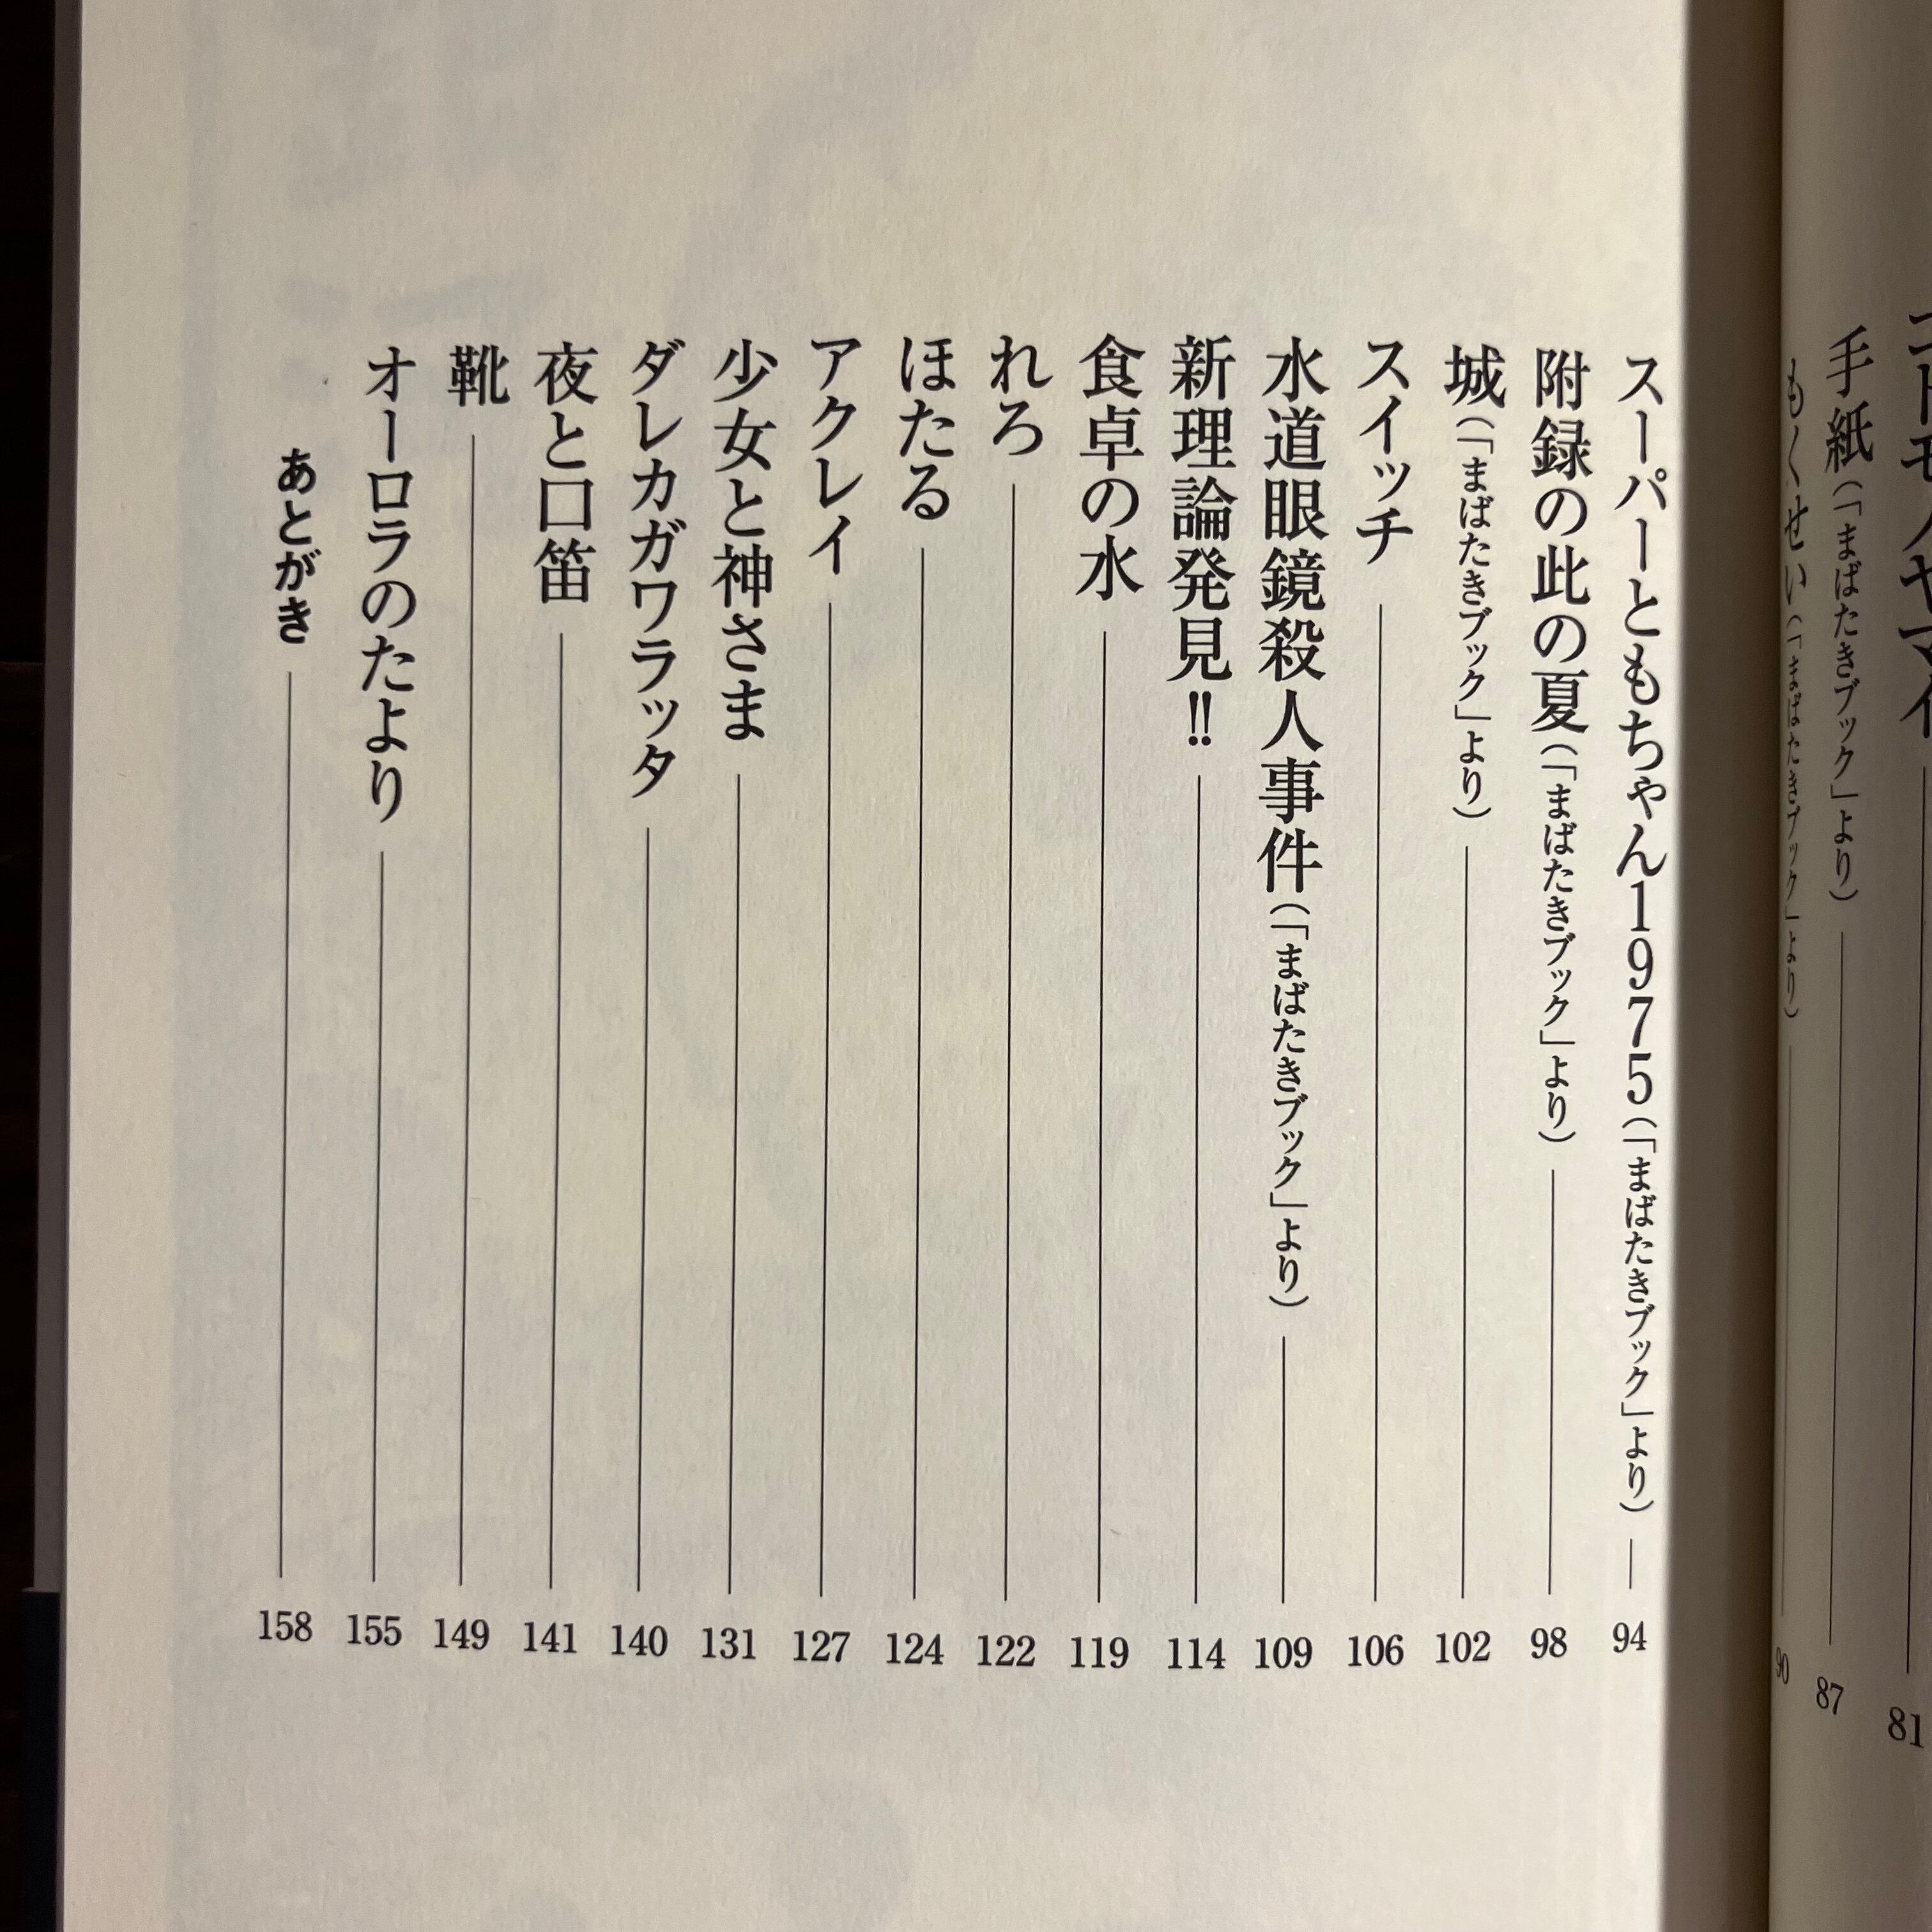 手紙(「まばたきブック」より) 87
もくせい(「まばたきブック」より) 90
スーパーともちゃん1975(「まばたきブック」より) 94
附録の此の夏(「まばたきブック」より) 98
城(「まばたきブック」より) 102
スイッチ 106
水道眼鏡殺人事件(「まばたきブック」より) 109
新理論発見!! 114
食卓の水 119
れろ 122
ほたる 124
アクレイ 127
少女と神さま 131
ダレカガワラッタ 140
夜と口笛 141
靴 149
オーロラのたより 155
あとがき 158